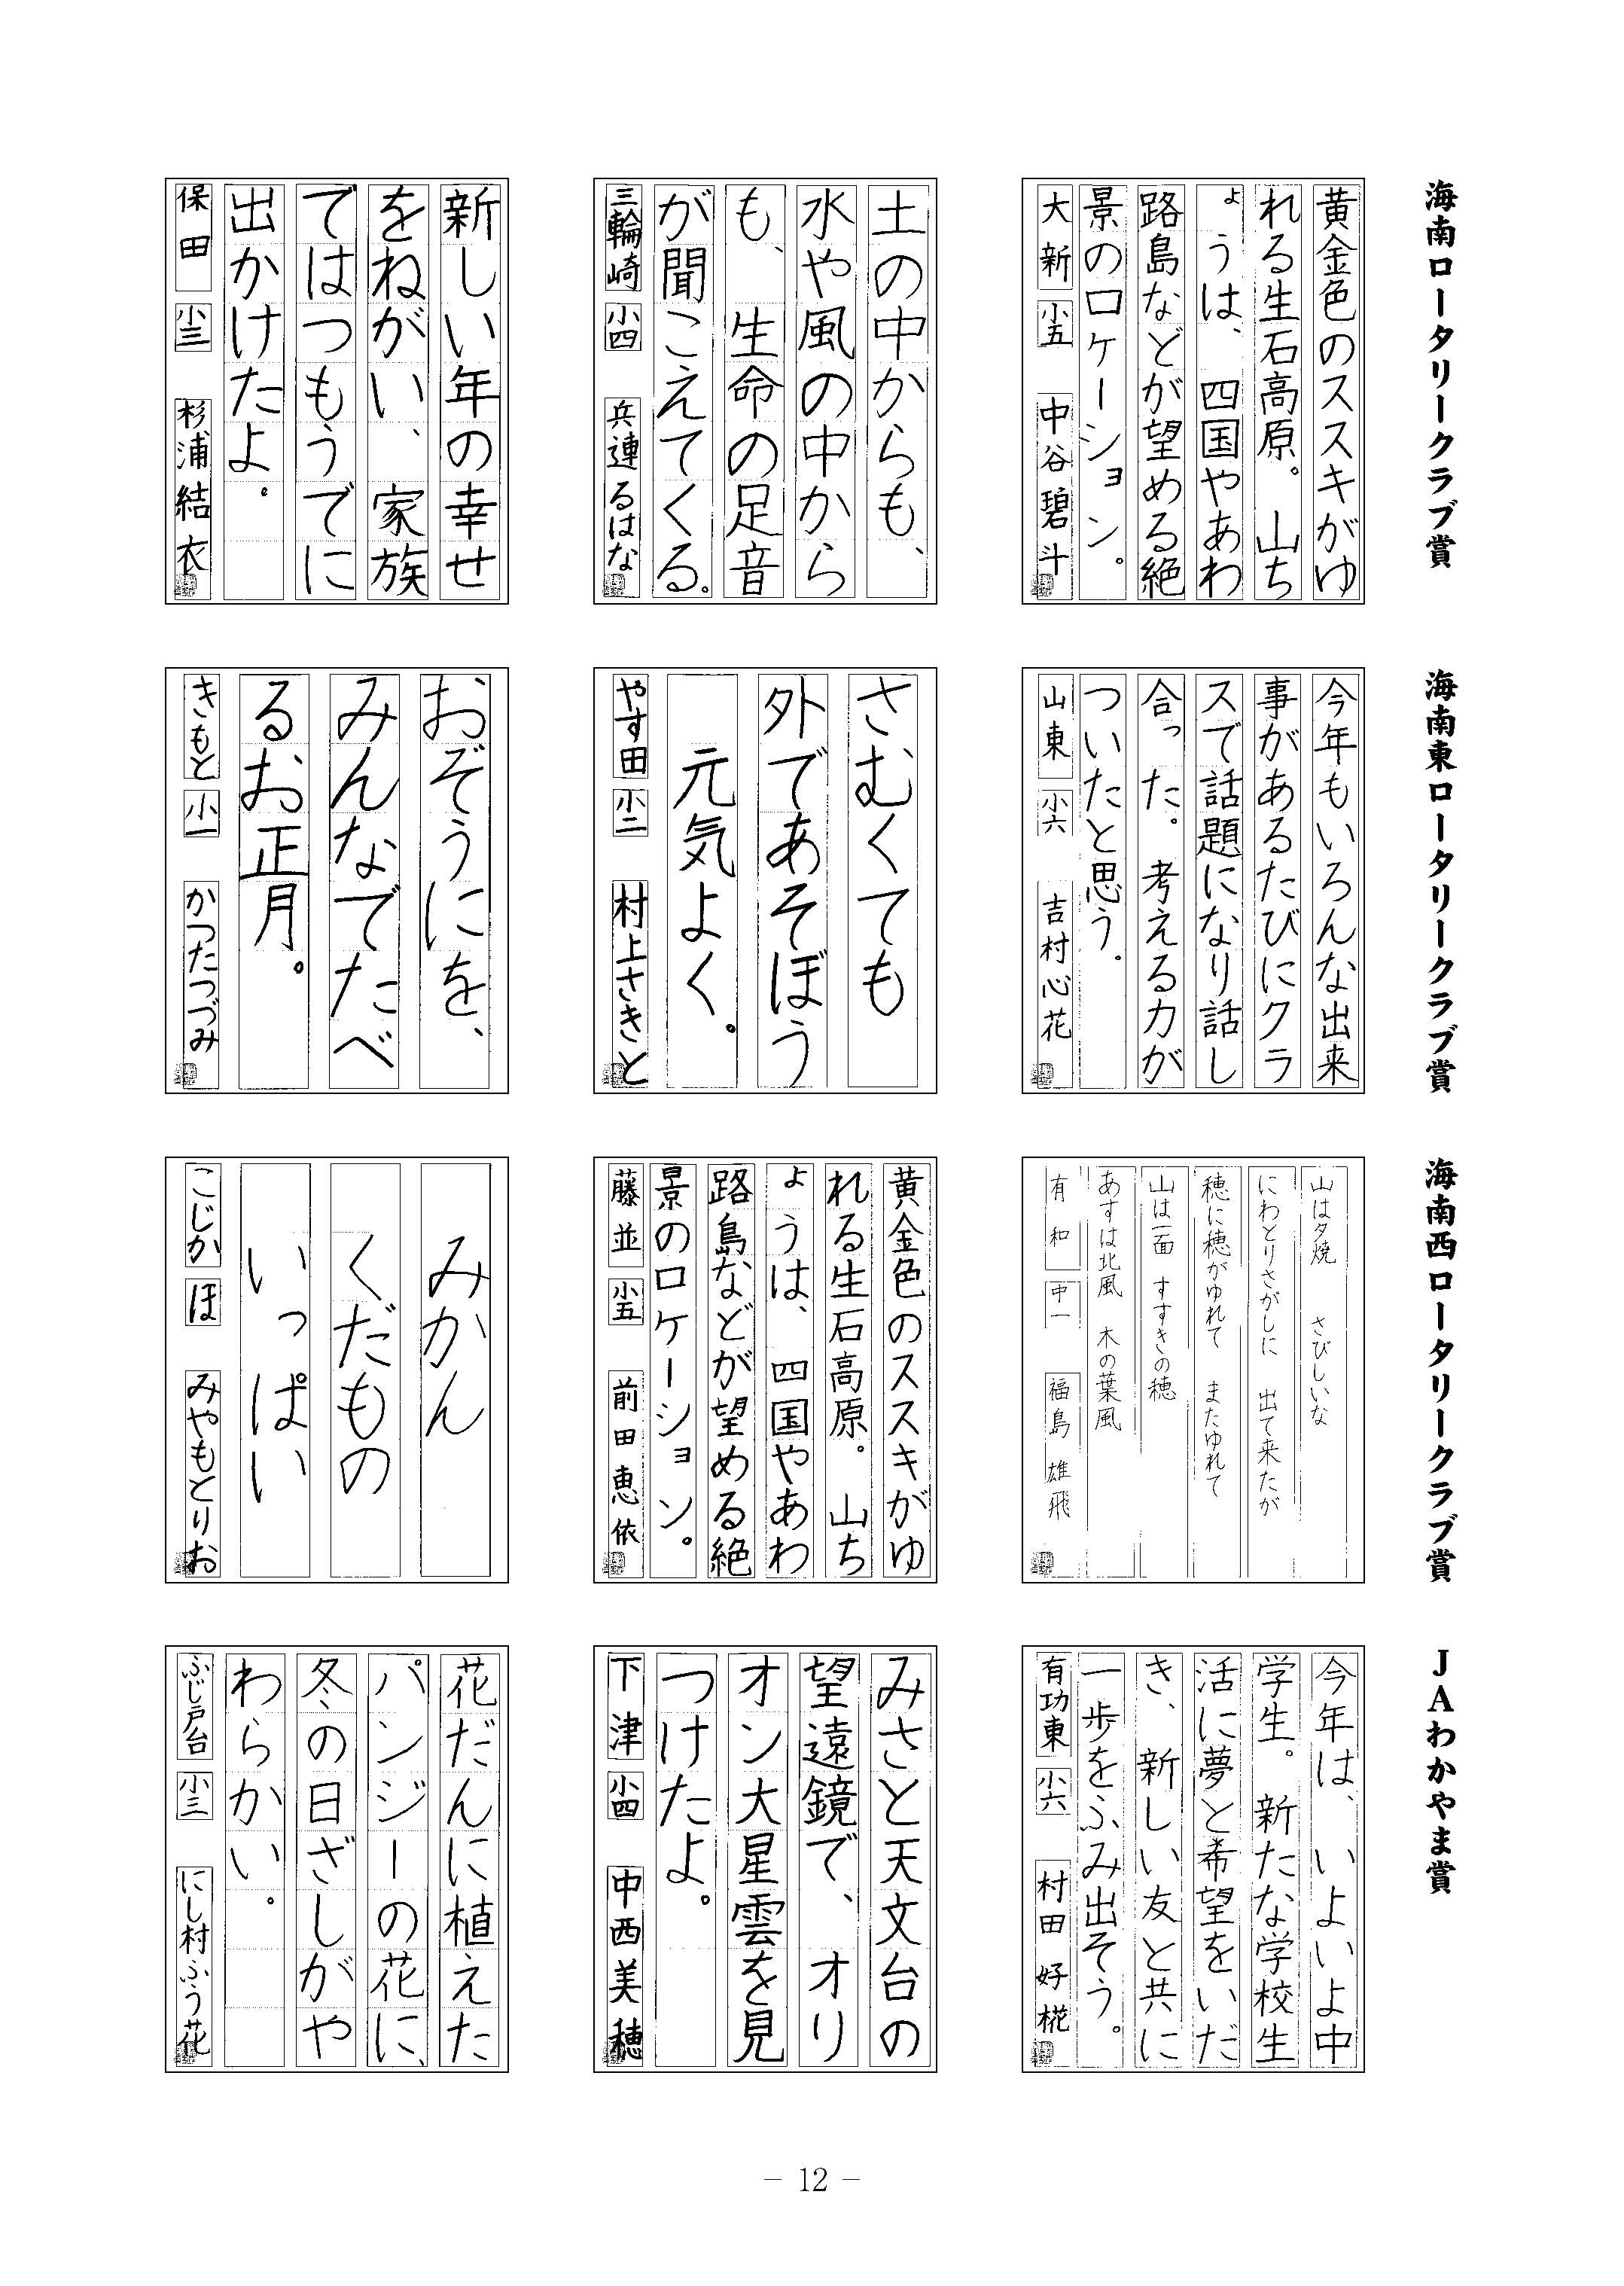 海南ロータリークラブ賞
黄金色のススキがゆ
れる生石高原。山ち
ょうは、四国やあわ
路島などが望める絶
景のロケーション。
大新 小五 中谷碧斗
土の中からも、
水や風の中から
も、生命の足音
が聞こえてくる。
三輪崎 小四 兵連るはな
新しい年の幸せ
をねがい、家族
ではつもうでに
出かけたよ。
保田 小三 杉浦結衣
海南東ロータリークラブ賞
今年もいろんな出来
事があるたびにクラ
スで話題になり話し
合った。考える力が
ついたと思う。
山東 小六 吉村心花
さむくても
外であそぼう
元気よく。
やす田 小二 村上さきと
おぞうにを、
みんなでたべ
るお正月。
きもと 小一 かつたつづみ
海南西ロータリークラブ賞
山は夕焼 さびしいな
にわとりさがしに 出て来たが
穂に穂がゆれて またゆれて
山は一面 すすきの穂
あすは北風 木の葉風
有和 中一 福島雄飛
黄金色のススキがゆ
れる生石高原。山ち
ょうは、四国やあわ
路島などが望める絶
景のロケーション。
藤並 小五 前田恵依
みかん
くだもの
いっぱい
こじか ほ みやもとりお
JAわかやま賞
今年は、いよいよ中
学生。新たな学校生
活に夢と希望をいだ
き、新しい友と共に
一歩をふみ出そう。
有功東 小六 村田好椛
みさと天文台の
望遠鏡で、オリ
オン大星雲を見
つけたよ。
下津 小四 中西美穂
花だんに植えた
パンジーの花に、
冬の日ざしがや
わらかい。
ふじ戸台 小三 にし村ふう花
- 12 -